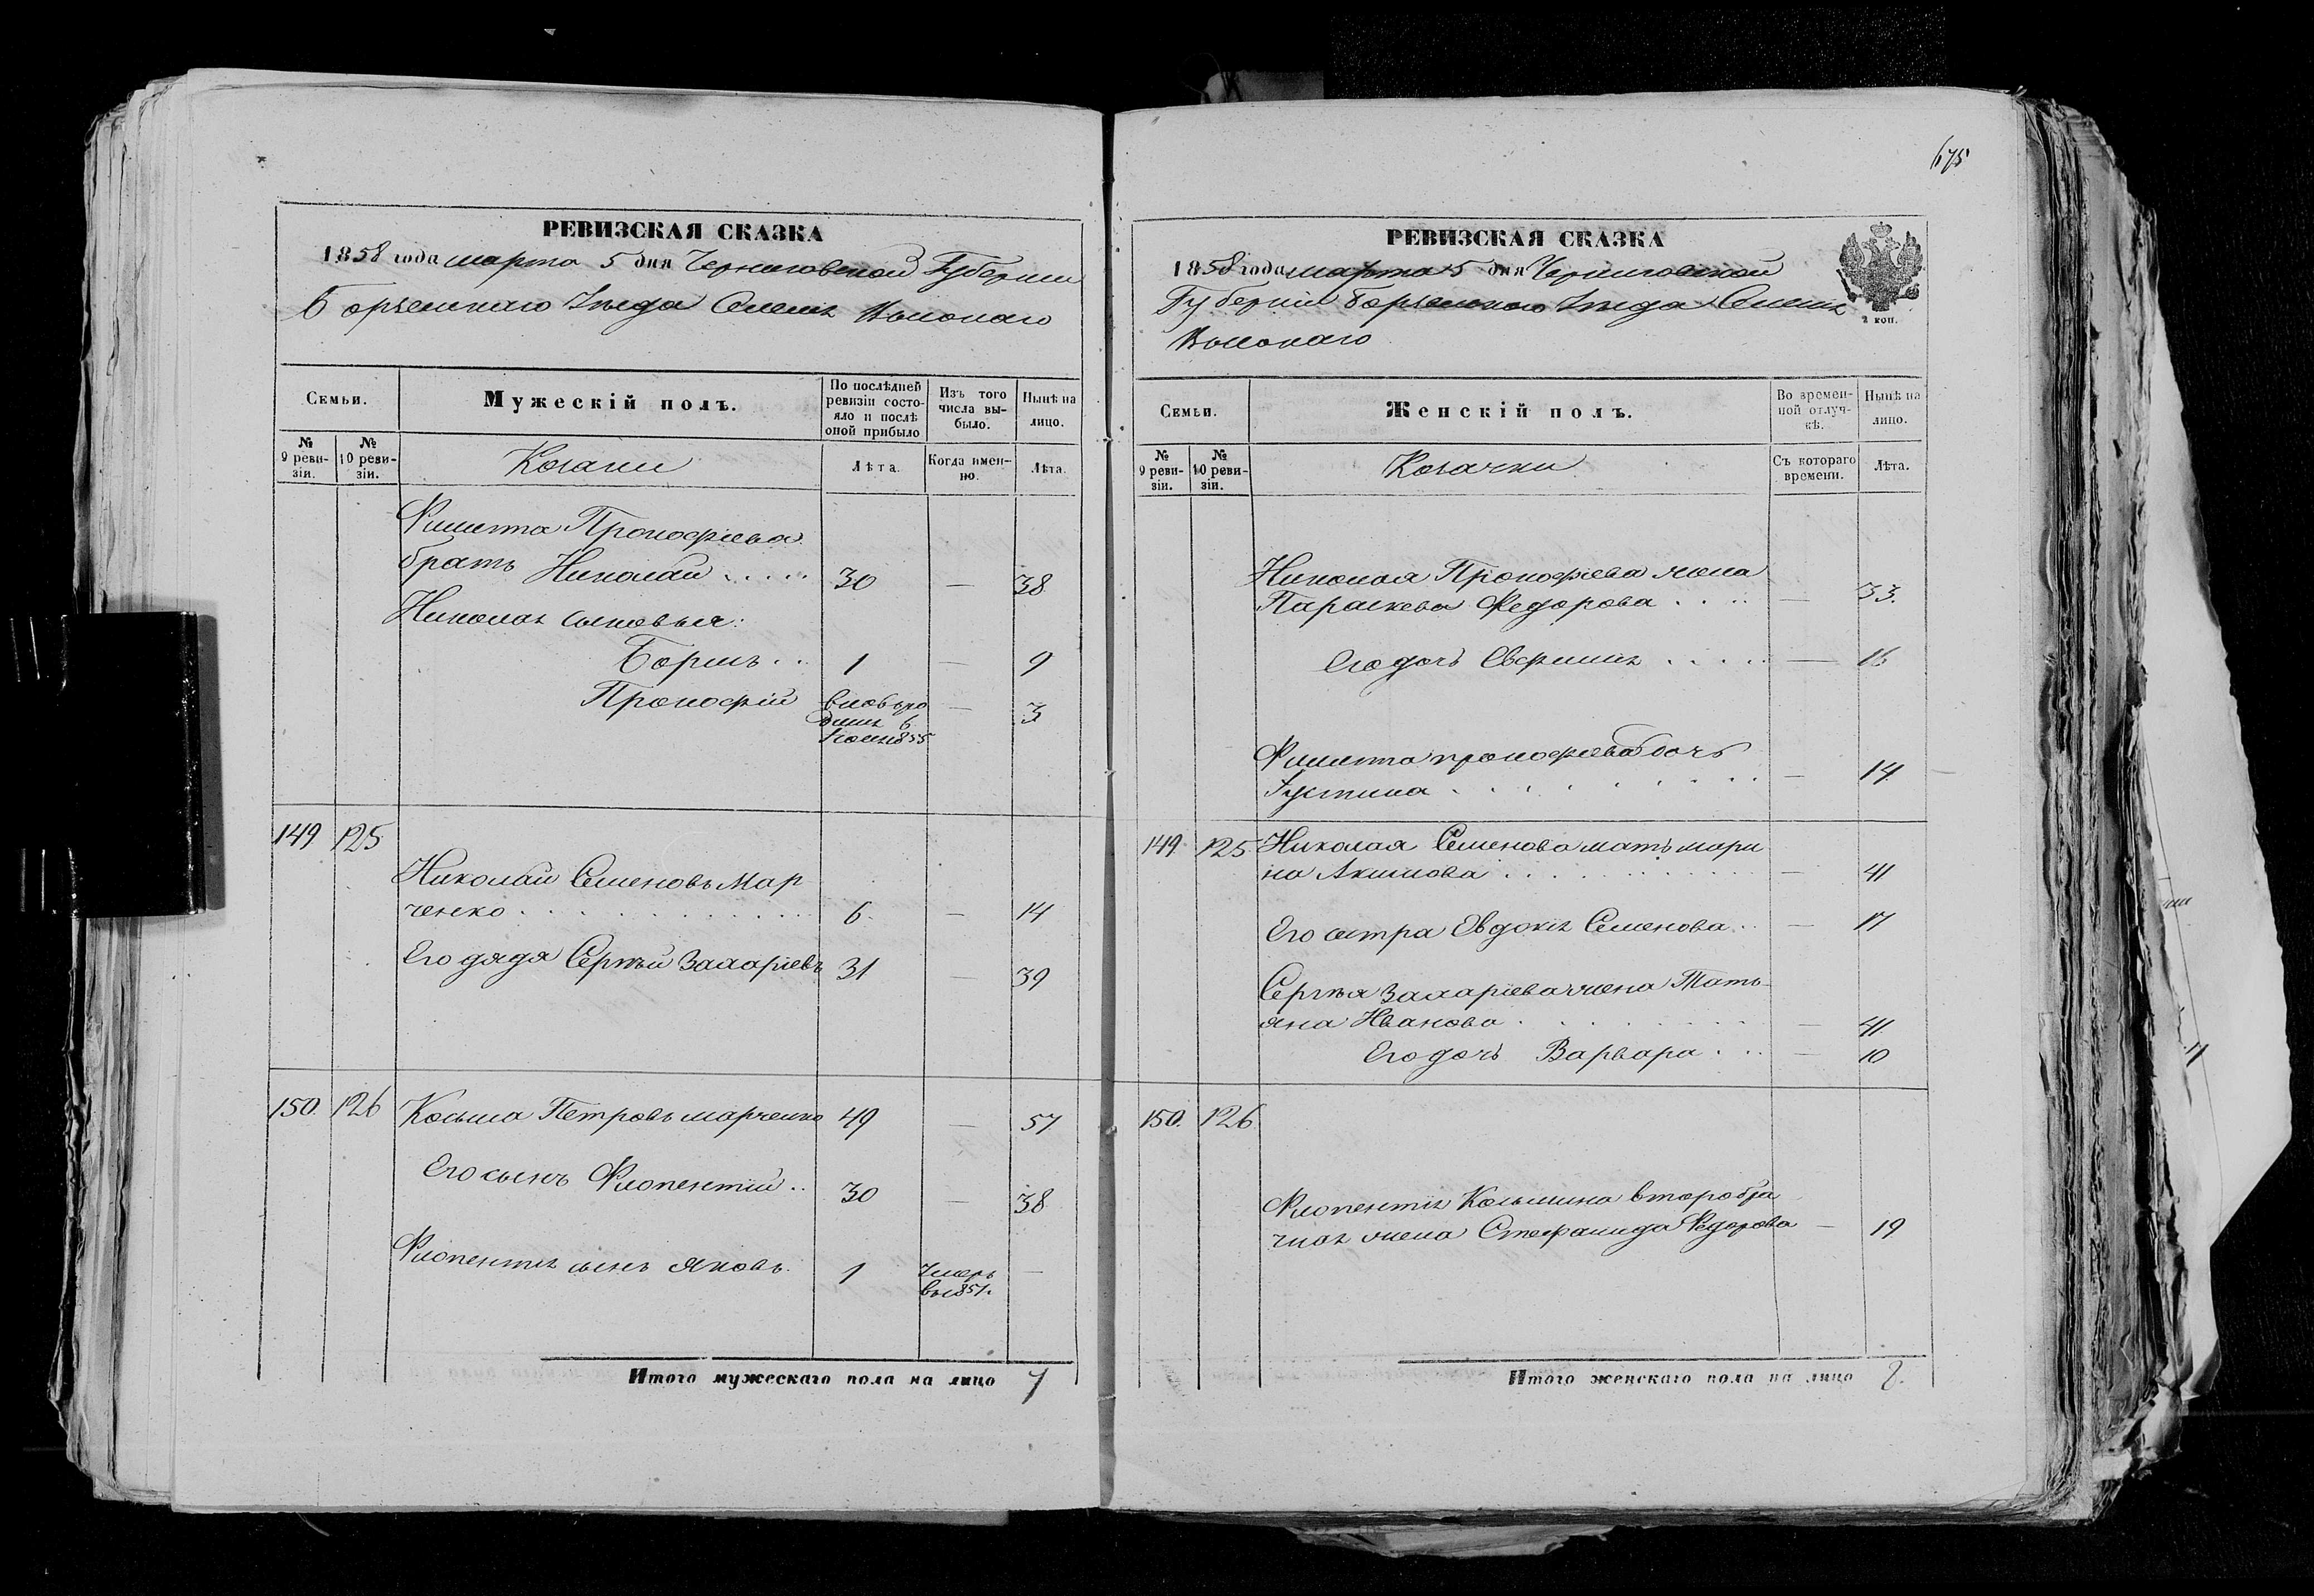 675
РЕВИЗСКАЯ СКАЗКА
1858 года марта 5 дня Черниговской Губернии
Борзенскаго Уезда
Семьи.
Мужескій полъ.
По послѣдней ревизіи состояло и послѣ оной прибыло
Изъ того числа выбыло.
Нынѣ на лицо.
№ 9 ревизіи.
№ 10 ревизіи.
Козаки
Лѣта.
Когда именно.
Лѣта.
Филиппа Прокофіева
братъ Николай . . . . . 30 — 38
Николая сыновья:
Борисъ . . 1 — 9
Прокофій — 3
149 125
Николай Семеновъ Мар
ченко . . . . . . . . . . 6. — 14
Его дядя Сергѣй Захаріевъ 31 — 39
150. 126 Косьма Петровъ Марченко 49 — 57
Его сынъ . . 30 — 38
сынъ Яковъ. 1 Умеръ —
въ 1851.
Итого мужескаго пола на лицо 7
РЕВИЗСКАЯ СКАЗКА
1858 года марта 5 дня Черниговской
Губерніи Борзенскаго Уезда
2 коп.
Семьи.
Женскій полъ.
Во временной отлучкѣ.
Нынѣ на лицо.
№ 9 ревизіи.
№ 10 ревизіи.
Козачки
Съ котораго времени.
Лѣта.
Николая Прокофіева жена
Параскева Федорова . . . . — 33.
Его дочь . . . . . — 16
Филиппа Прокофіева дочь
Густина . . . . . . . . — 14
149 125 Николая Семенова мать Мари
на Акимова . . . . . . . . . — 41
Его сестра Евдокія Семенова . . — 17
Сергѣя Захаріева жена Тать-
яна Иванова . . . . . . . — 41
Его дочь Варвара . . . — 10
150. 126
Косьмина второбра
чная жена Стефанида Федорова — 19
Итого женскаго пола на лицо 8.